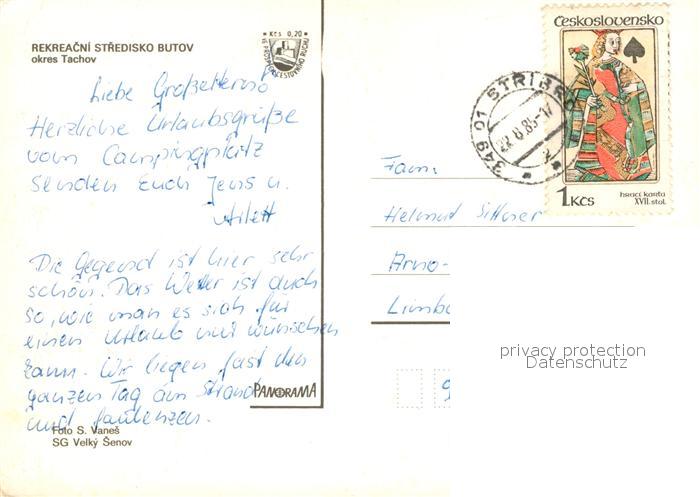 REKREAČNÍ STŘEDISKO BUTOV
okres Tachov
Kčs 0,20
Liebe Großeltern!
Herzliche Urlaubsgrüße
vom Campingplatz
senden Euch Jens u.
Arlett
Die Gegend ist hier sehr
schön. Das Wetter ist auch
so, wie man es sich für
einen Urlaub nur wünschen
kann. Wir liegen fast den
ganzen Tag am Strand
und faulenzen.
PANORAMA
Foto S. Vaneš
SG Velký Šenov
Československo
1 Kčs
hrací karta
XVII. stol.
349 01 STŘÍBRO
Fam.
Helmut
Arno-
Limb
privacy protection
Datenschutz